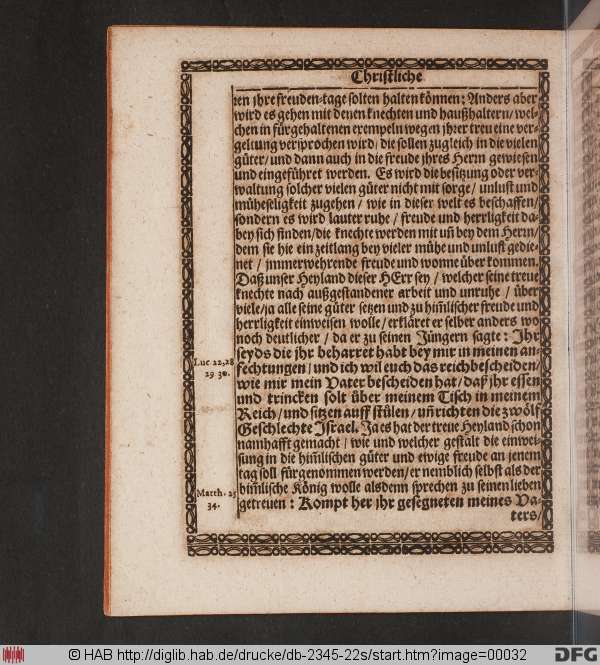 Christliche
ren jhre freuden-tage solten halten können: Anders aber
wird es gehen mit denen knechten und haußhaltern/ wel-
chen in fürgehaltenen exempeln wegen jhrer treu eine ver-
geltung versprochen wird; die sollen zugleich in die vielen
güter/ und dann auch in die freude jhres Herrn gewiesen
und eingeführet werden. Es wird die besitzung oder ver-
waltung solcher vielen güter nicht mit sorge/ unlust und
müheseligkeit zugehen/ wie in dieser welt es beschaffen/
sondern es wird lauter ruhe/ freude und herrligkeit da-
bey sich finden/ die knechte werden mit uñ bey dem Herrn/
dem sie hie ein zeitlang bey vieler mühe und unlust gedie-
net/ jmmerwehrende freude und wonne über kommen.
Daß unser Heyland dieser HErr sey/ welcher seine treue
knechte nach außgestandener arbeit und unruhe/ über
viele/ ja alle seine güter setzen und zu him̃lischer freude und
herrligkeit einweisen wolle/ erkläret er selber anders wo
noch deutlicher/ da er zu seinen Jüngern sagte: Jhr
seyds die jhr beharret habt bey mir in meinen an-
Luc 22,28
29 30.
fechtungen/ und ich wil euch das reich bescheiden/
wie mir mein Vater bescheiden hat/ daß jhr essen
und trincken solt über meinem Tisch in meinem
Reich/ und sitzen auff stülen/ uñ richten die zwölf
Geschlechte Israel. Ja es hat der treue Heyland schon
namhafft gemacht/ wie und welcher gestalt die einwei-
sung in die him̃lischen güter und ewige freude an jenem
tag soll fürgenommen werden/ er nemblich selbst als der
Matth. 25
34.
him̃lische König wolle alsdenn sprechen zu seinen lieben
getreuen: Kompt her jhr gesegneten meines Va-
ters/
© HAB http://diglib.hab.de/drucke/db-2345-22s/start.htm?image=00032
DFG